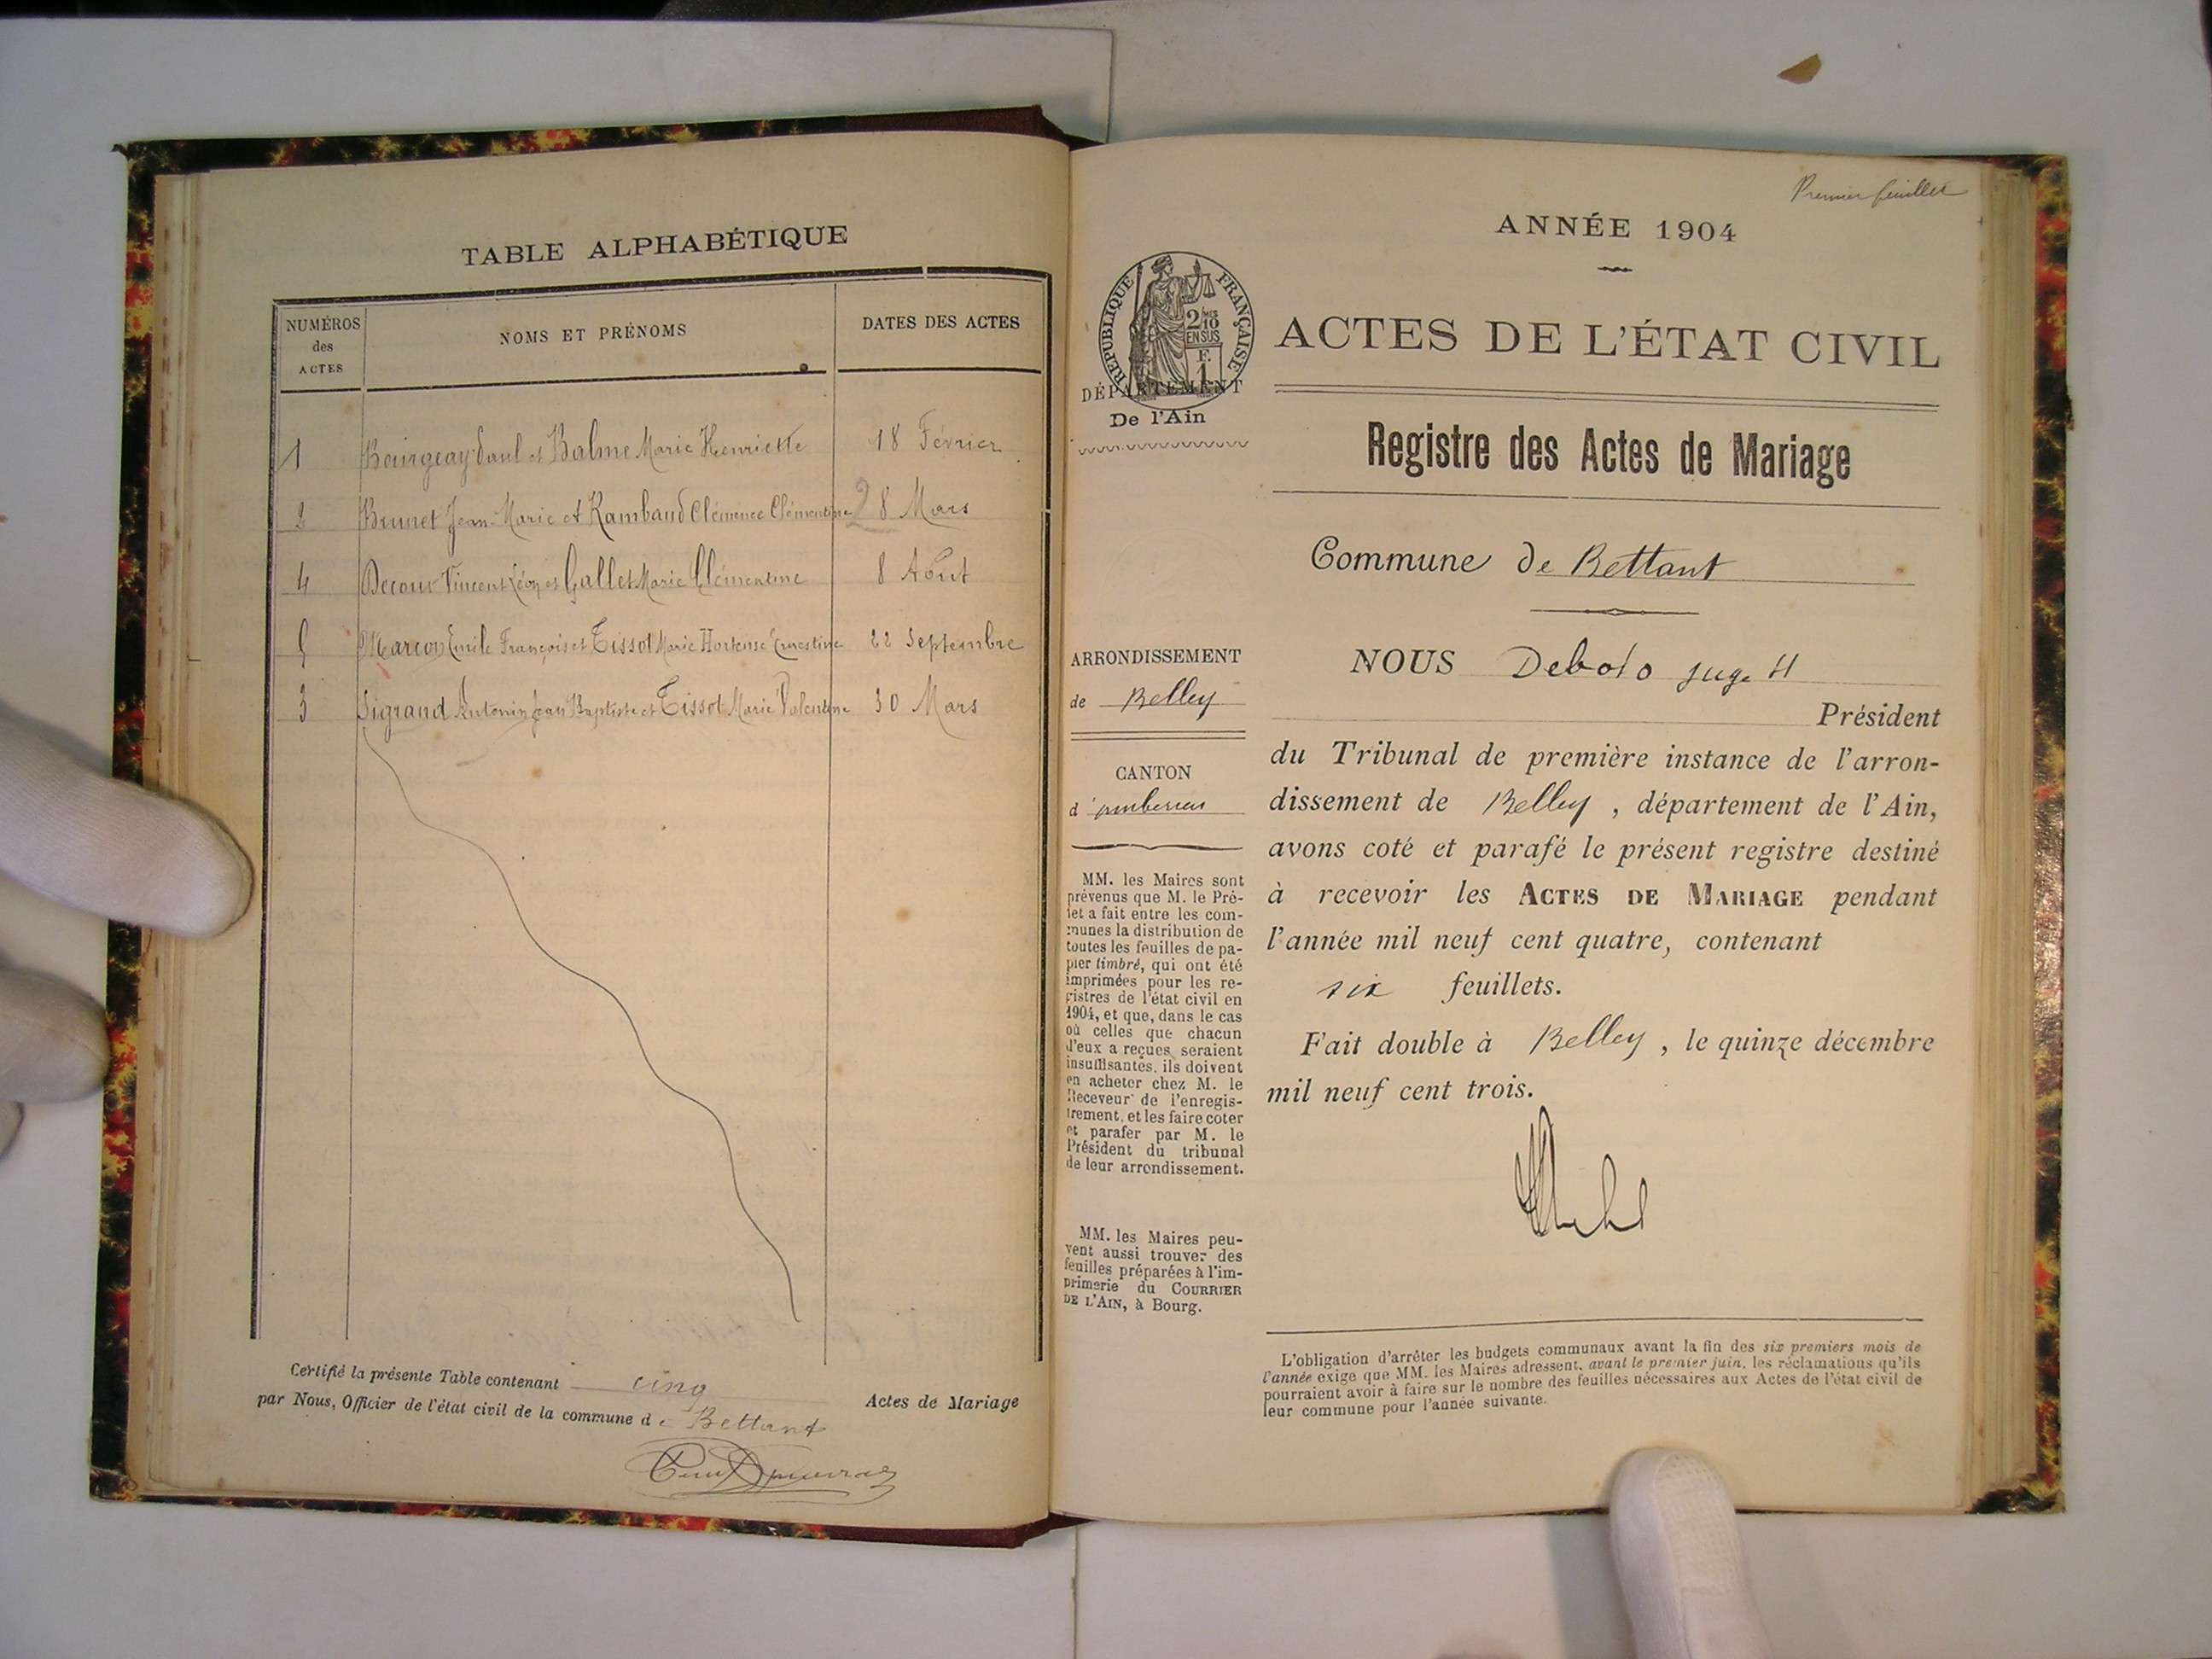 TABLE ALPHABÉTIQUE
NUMÉROS des ACTES
NOMS ET PRÉNOMS
DATES DES ACTES
1 Bourgeay Paul et Balme Marie Henriette 18 Février
2 Brunet Jean-Marie et Rambaud Clémence Clémentine 28 Mars
4 Decour Vincent Léon et Gallet Marie Clémentine 8 Août
5 Marcon Emile François et Tissot Marie Hortense Ernestine 22 Septembre
3 Sigrand Antonin Jean Baptiste et Tissot Marie Valentine 30 Mars
Certifié la présente Table contenant cinq Actes de Mariage
par Nous, Officier de l'état civil de la commune de Bettant
Premier feuillet
ANNÉE 1904
RÉPUBLIQUE FRANÇAISE
2/10 EN SUS
F. 1
DÉPARTEMENT
De l'Ain
ACTES DE L'ÉTAT CIVIL
Registre des Actes de Mariage
Commune de Bettant
ARRONDISSEMENT
de Belley
CANTON
d'
MM. les Maires sont
prévenus que M. le Pré-
fet a fait entre les com-
munes la distribution de
toutes les feuilles de pa-
pier timbré, qui ont été
imprimées pour les re-
gistres de l'état civil en
1904, et que, dans le cas
où celles que chacun
d'eux a reçues seraient
insuffisantes, ils doivent
en acheter chez M. le
Receveur de l'enregis-
trement, et les faire coter
et parafer par M. le
Président du tribunal
de leur arrondissement.
MM. les Maires peu-
vent aussi trouver des
feuilles préparées à l'im-
primerie du COURRIER
DE L'AIN, à Bourg.
NOUS juge
Président
du Tribunal de première instance de l'arron-
dissement de Belley, département de l'Ain,
avons coté et parafé le présent registre destiné
à recevoir les ACTES DE MARIAGE pendant
l'année mil neuf cent quatre, contenant
six feuillets.
Fait double à Belley, le quinze décembre
mil neuf cent trois.
L'obligation d'arrêter les budgets communaux avant la fin des six premiers mois de
l'année exige que MM. les Maires adressent, avant le premier juin, les réclamations qu'ils
pourraient avoir à faire sur le nombre des feuilles nécessaires aux Actes de l'état civil de
leur commune pour l'année suivante.